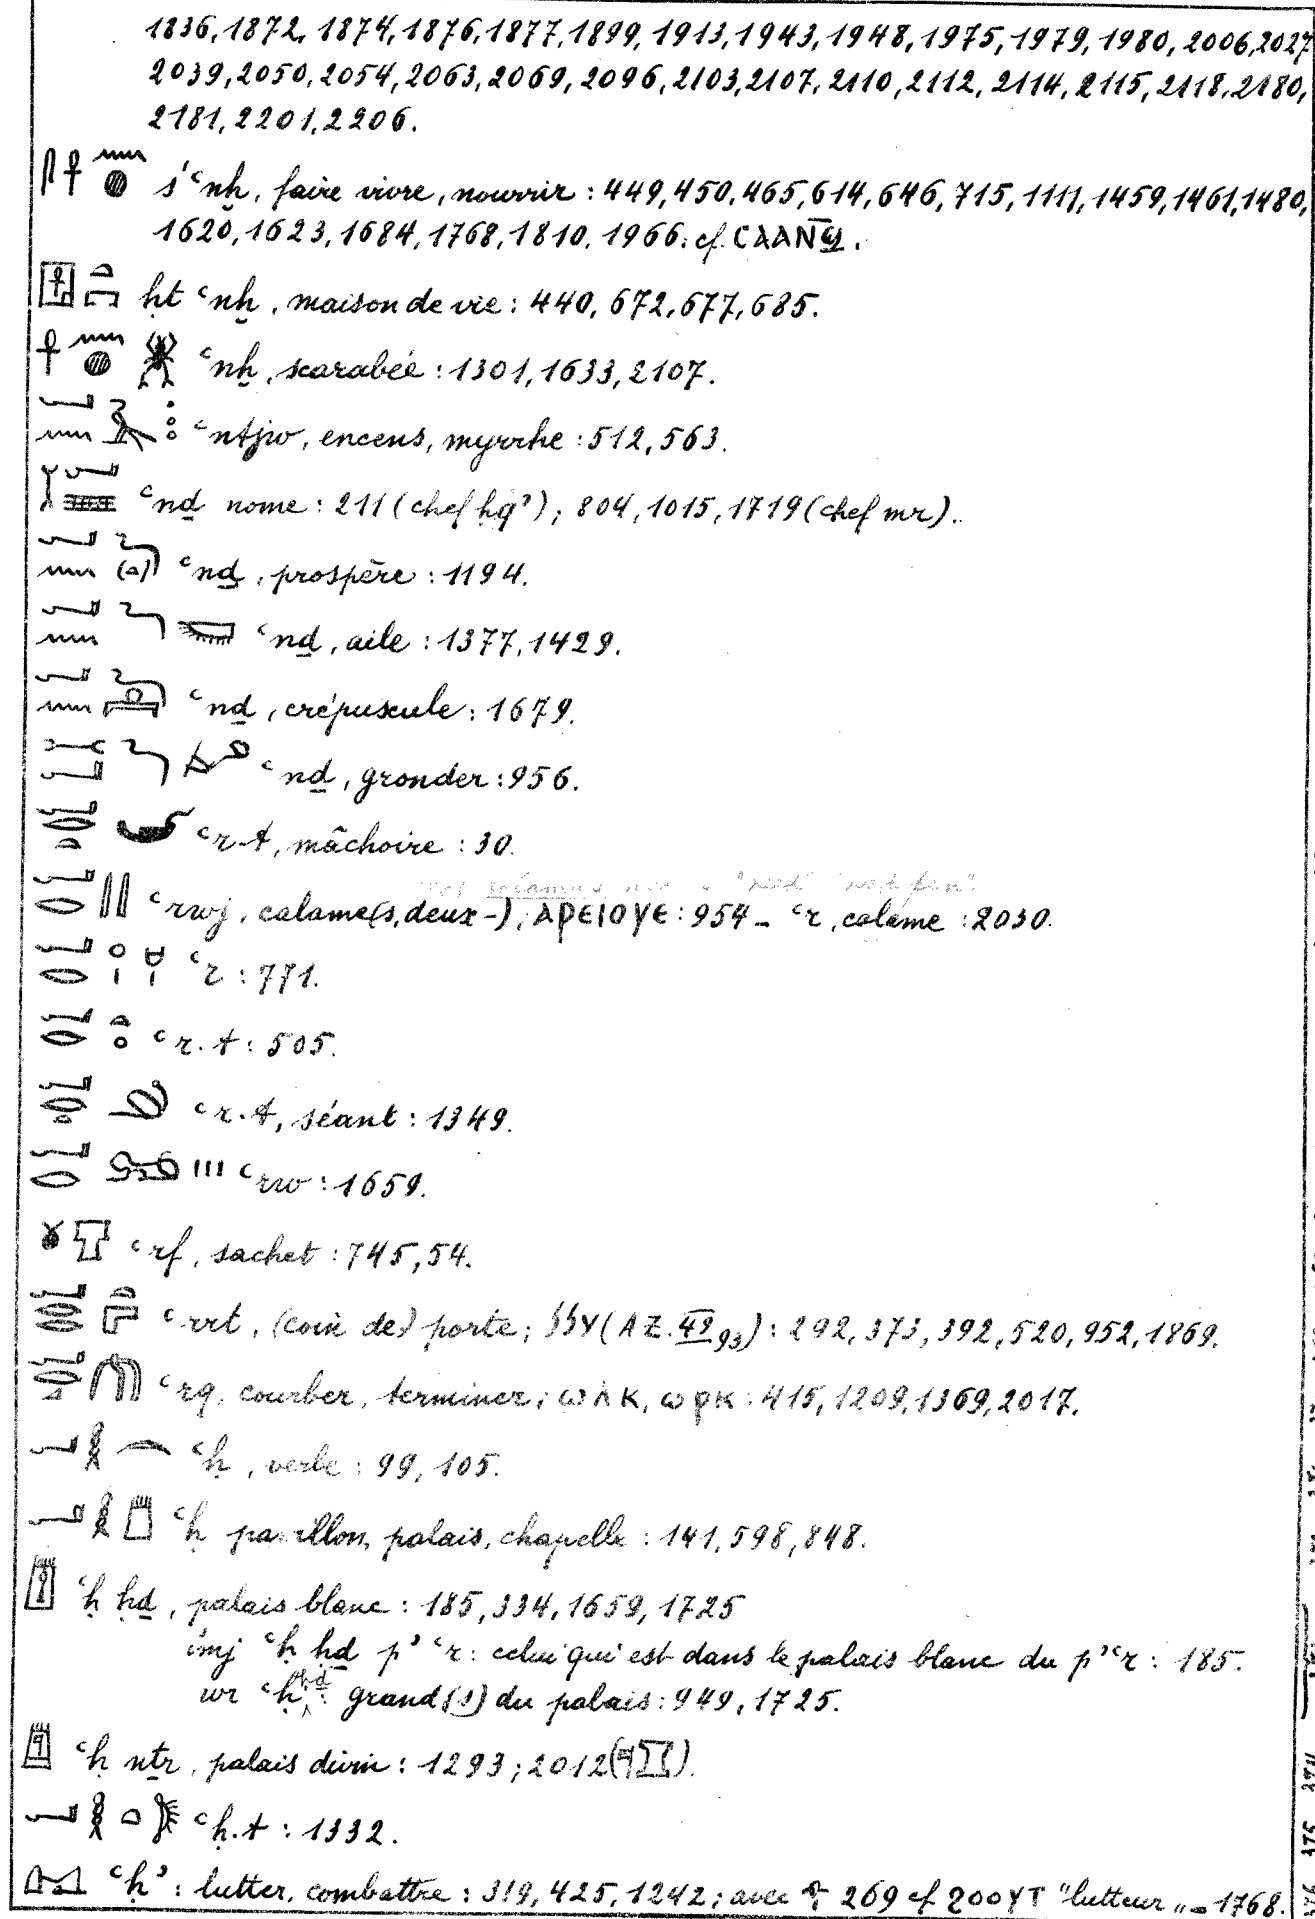 1836, 1872, 1874, 1876, 1877, 1899, 1913, 1943, 1948, 1975, 1979, 1980, 2006, 2027
2039, 2050, 2054, 2063, 2069, 2096, 2103, 2107, 2110, 2112, 2114, 2115, 2118, 2180,
2181, 2201, 2206.
ś ꜥnḫ, faire vivre, nourrir : 449, 450, 465, 614, 646, 715, 1111, 1459, 1461, 1480,
1620, 1623, 1684, 1768, 1810, 1966. cf. ⲤⲀⲀⲚϢ̅.
ḥt ꜥnḫ, maison de vie : 440, 672, 677, 685.
ꜥnḫ, scarabée : 1301, 1633, 2107.
ꜥntjw, encens, myrrhe : 512, 563.
ꜥnḏ nome : 211 (chef ḥqꜣ); 804, 1015, 1719 (chef mr).
ꜥnḏ, prospère : 1194.
ꜥnḏ, aile : 1377, 1429.
ꜥnḏ, crépuscule : 1679.
ꜥnḏ, gronder : 956.
ꜥr-t, mâchoire : 30.
ꜥrwj, calame(s, deux -), ⲀⲢⲈⲒⲞⲨⲈ : 954 - ꜥr, calame : 2030.
ꜥr : 771.
ꜥr.t : 505.
ꜥr.t, séant : 1349.
ꜥrw : 1659.
ꜥrf, sachet : 745, 54.
ꜥrrt, (coin de) porte; (AZ. 49 93) : 292, 373, 392, 520, 952, 1869.
ꜥrq, courber, terminer; ⲱⲗⲕ, ⲱⲣⲕ : 415, 1209, 1369, 2017.
ꜥḥ, verbe : 99, 105.
ꜥḥ pavillon, palais, chapelle : 141, 598, 848.
ꜥḥ ḥḏ, palais blanc : 185, 334, 1659, 1725
imj ꜥḥ ḥḏ pꜣ ꜥr : celui qui est dans le palais blanc du pꜣ ꜥr : 185.
wr ꜥḥ ḥḏ : grand(s) du palais : 949, 1725.
ꜥḥ nṯr, palais divin : 1293; 2012
ꜥḥ.t : 1332.
ꜥḥꜣ : lutter, combattre : 319, 425, 1242; avec 269 cf ϨⲞⲞⲨⲦ "lutteur" - 1768.